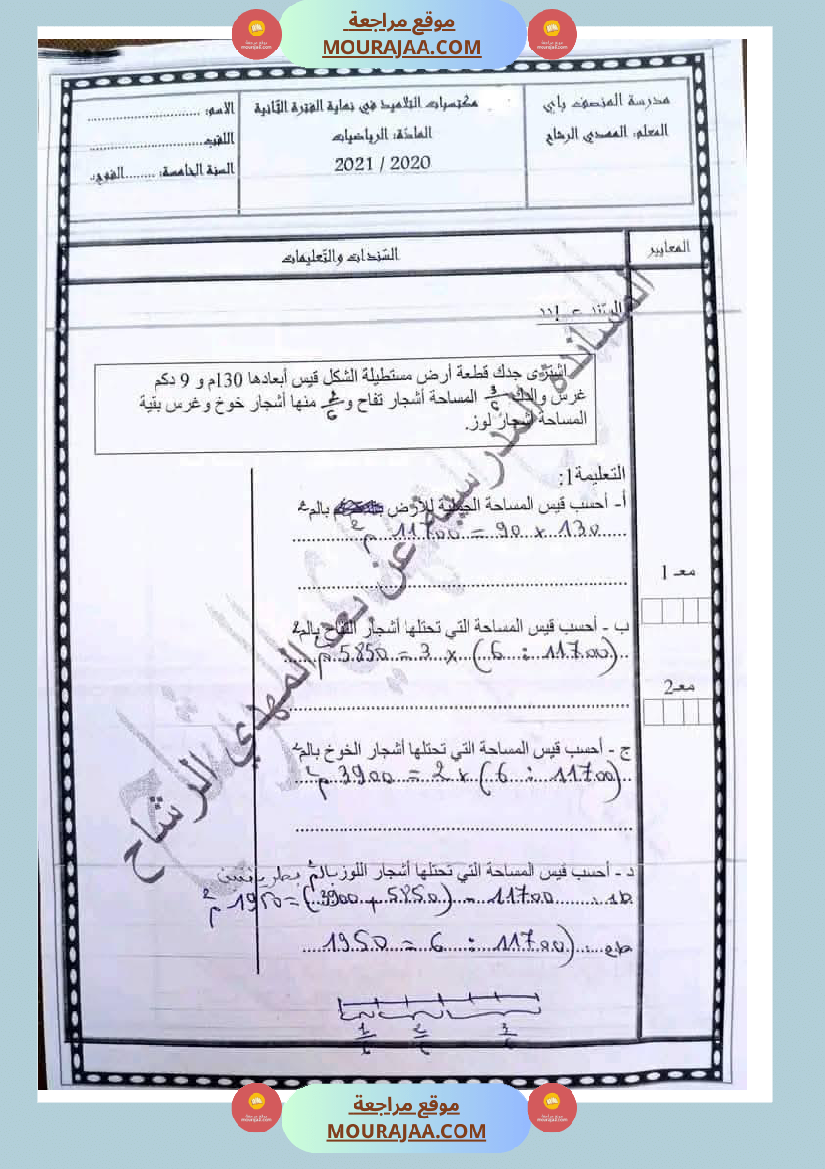 موقع مراجعة
MOURAJAA.COM
مدرسة المنصف باي
المعلم: المهدي الرشاح
مكتسبات التلاميذ في نهاية الفترة الثانية
المادة: الرياضيات
2021 / 2020
الاسم: ..............................
اللقب..............................
السنة الخامسة: ........الفوج:.
المعايير
السندات والتعليمات
السند عـ1ـدد
اشترى جدك قطعة أرض مستطيلة الشكل قيس أبعادها 130م و 9 دكم
غرس والدك 3/6 المساحة أشجار تفاح و 2/6 منها أشجار خوخ وغرس بقية
المساحة أشجار لوز.
التعليمة1:
أ- أحسب قيس المساحة الجملية للأرض بالم2
130 x 90 = 11700 م2
معـ 1
ب - أحسب قيس المساحة التي تحتلها أشجار التفاح بالم2
(11700 : 6) x 3 = 5850 م2
معـ2
ج - أحسب قيس المساحة التي تحتلها أشجار الخوخ بالم2
(11700 : 6) x 2 = 3900 م2
د - أحسب قيس المساحة التي تحتلها أشجار اللوز بالم2 بطريقتين
ط1 : 11700 - (5850 + 3900) = 1950 م2
ط2 : (11700 : 6 = 1950
1/6 2/6 3/6
المساندة المدرسية عن بعد المهدي الرشاح
موقع مراجعة
MOURAJAA.COM